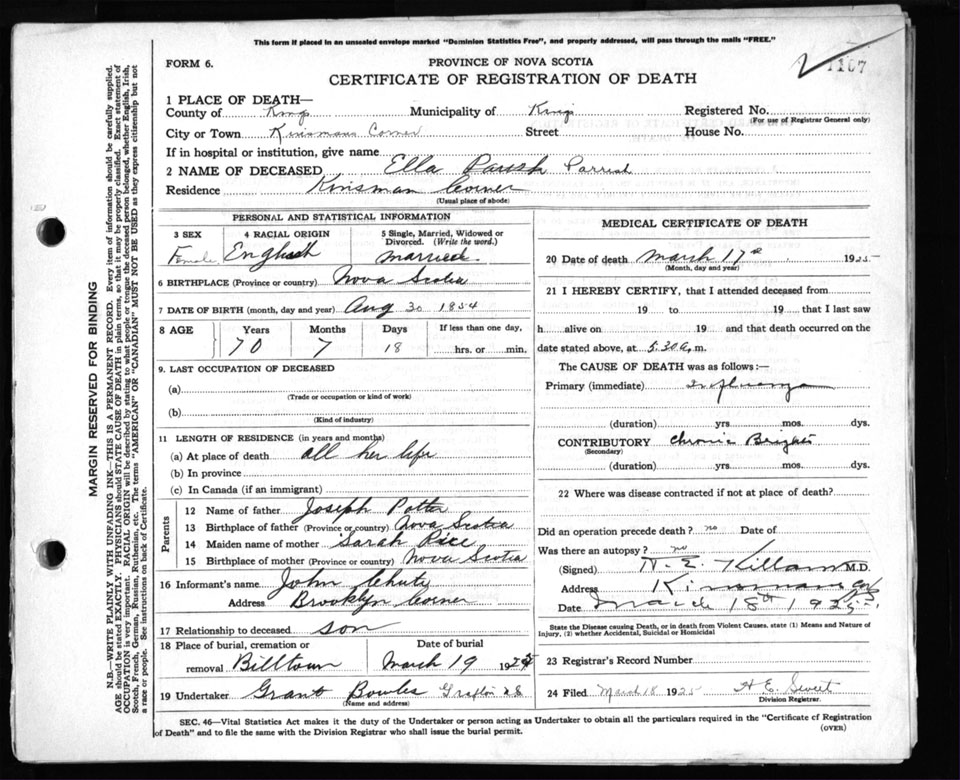 This form if placed in an unsealed envelope marked "Dominion Statistics Free", and properly addressed, will pass through the mails "FREE."
FORM 6.
PROVINCE OF NOVA SCOTIA
CERTIFICATE OF REGISTRATION OF DEATH
1167
1 PLACE OF DEATH—
County of Kings Municipality of Kings Registered No.
(For use of Registrar General only)
City or Town Kinsmans Corner Street House No.
If in hospital or institution, give name
2 NAME OF DECEASED Ella Parish Parrish
Residence Kinsman Corner
(Usual place of abode)
PERSONAL AND STATISTICAL INFORMATION
3 SEX 4 RACIAL ORIGIN 5 Single, Married, Widowed or Divorced. (Write the word.)
Female English married
6 BIRTHPLACE (Province or country) Nova Scotia
7 DATE OF BIRTH (month, day and year) Aug 30 1854
8 AGE Years Months Days If less than one day,
70 7 18 hrs. or min.
9. LAST OCCUPATION OF DECEASED
(a)
(Trade or occupation or kind of work)
(b)
(Kind of industry)
11 LENGTH OF RESIDENCE (in years and months)
(a) At place of death all her life
(b) In province
(c) In Canada (if an immigrant)
Parents
12 Name of father Joseph Potter
13 Birthplace of father (Province or country) Nova Scotia
14 Maiden name of mother Sarah Rice
15 Birthplace of mother (Province or country) Nova Scotia
16 Informant's name John Chute
Address Brooklyn Corner
17 Relationship to deceased son
18 Place of burial, cremation or removal Billtown Date of burial March 19 1925
19 Undertaker Grant Bowles Grafton N.S.
(Name and address)
MEDICAL CERTIFICATE OF DEATH
20 Date of death March 17th 1925
(Month, day and year)
21 I HEREBY CERTIFY, that I attended deceased from
19 to 19 that I last saw
h alive on 19 and that death occurred on
date stated above, at 5.30 a. m.
The CAUSE OF DEATH was as follows:—
Primary (immediate) Influenza
(duration) yrs mos. dys.
CONTRIBUTORY Chronic Brights
(Secondary)
(duration) yrs mos. dys.
22 Where was disease contracted if not at place of death?
Did an operation precede death? no Date of
Was there an autopsy? no
(Signed) Killam M.D.
Address Kinsmans
Date March 18th 1925
State the Disease causing Death, or in death from Violent Causes, state (1) Means and Nature of Injury, (2) whether Accidental, Suicidal or Homicidal
23 Registrar's Record Number
24 Filed March 18 1925 H E Sweet
Division Registrar.
SEC. 46—Vital Statistics Act makes it the duty of the Undertaker or person acting as Undertaker to obtain all the particulars required in the "Certificate of Registration
of Death" and to file the same with the Division Registrar who shall issue the burial permit.
(OVER)
MARGIN RESERVED FOR BINDING
N.B.—WRITE PLAINLY WITH UNFADING INK—THIS IS A PERMANENT RECORD. Every item of information should be carefully supplied.
AGE should be stated EXACTLY. PHYSICIANS should STATE CAUSE OF DEATH in plain terms, so that it may be properly classified. Exact statement of
OCCUPATION is very important. RACIAL ORIGIN will be described by stating to what people or tongue the deceased person belonged, whether English, Irish,
Scotch, French, German, Russian, Ruthenian, etc. The terms "AMERICAN" OR "CANADIAN" MUST NOT BE USED as they express citizenship but not
a race or people. See instructions on back of Certificate.